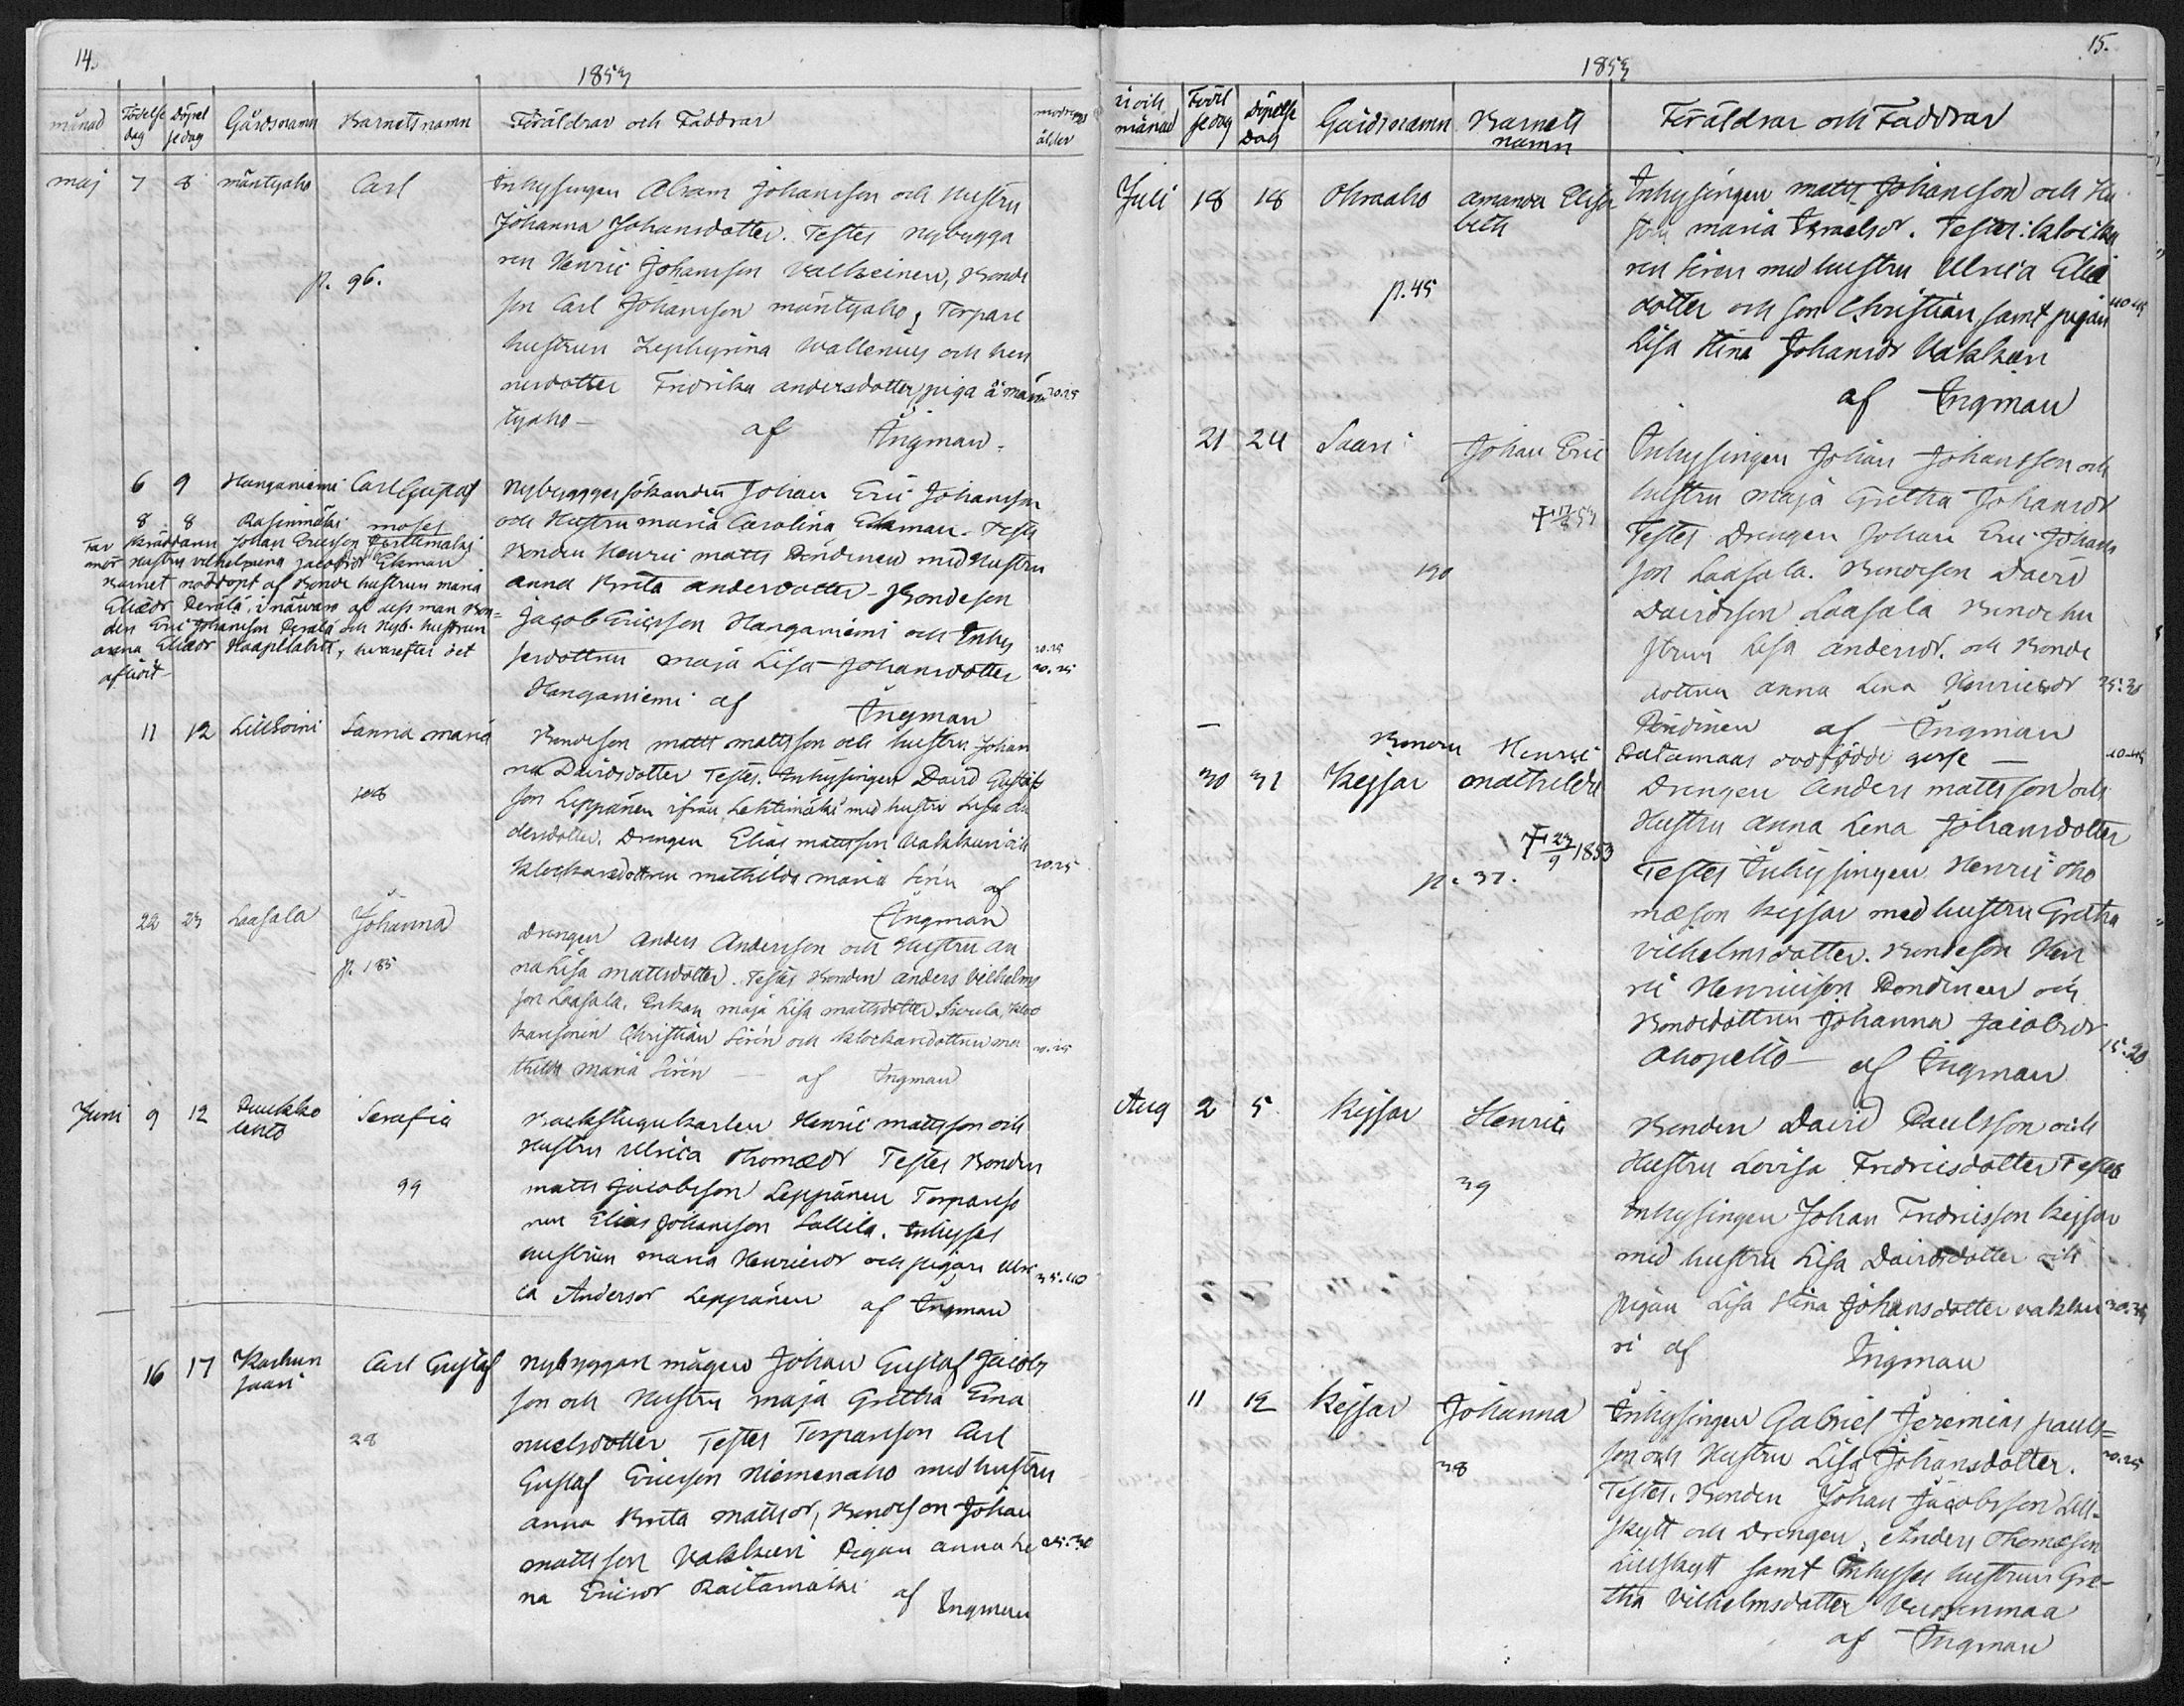 14.
1853
månad Födelse dag Döpel sedag Gårdsnamn Barnets namn Föräldrar och Faddrar modrens ålder
maj 7 8 mäntyaho Carl Inhysingen Abram Johansson och Hustru
Johanna Johansdotter. Testes nybygga
ren Henric Johansson Valkeinen, Bonde
p. 96.
son Carl Johansson mäntyaho, Torpare
hustrun Zephyrina Wallenius och hen
nesdotter Fredrika andersdotter, piga å män 20.25
tyaho — af Ingman.
6 9 Hanganiemi Carl Gustaf Nybyggessökanden Johan Eric Johansson
och Hustru maria Carolina Ekman. Testes
Bonden Henric matts Pendinen med Hustru
anna Brita andersdotter – Bondeson
Jacob Ericsson Hanganiemi och Inhy
sesdottren maja Lisa Johansdotter 20.25
Hanganiemi af Ingman
8 8 Rasinmäki moses
Far Skräddaren Johan Ericsson Perttimäki
mor Hustru vilhelmina Jacobsdr Ekman
Barnet nöddöpt af Bonde hustrun maria
Eliædr Perälä, i närvaro af dess man Bon=
den Eric Johansson Perälä och Nyb. hustrun
anna Eliædr Haapilahti, hvarefter det
aflidit — 20.25
11 12 Lillsoini Sanna maria Bondeson matts mattsson och hustru Johan
na Davidsdotter Testes. Inhysingen David Gustafs
108
son Leppänen ifrån Lehtimäki med hustru Lisa An
dersdotter. Drengen Elias mattsson Vakkuri och
Klockaredottren mathilda maria Sirén af 20.25
Ingman
22 23 Laasala Johanna Drengen Anders Andersson och Hustru An
p. 185
na Lisa mattsdotter. Testes Bonden anders Vilhelms
son Laasala. Enkan maja Lisa mattsdotter Sivula, Kloc
karesonen Christian Sirén och Klockaredottren ma
thilda maria Sirén — af Ingman 20.25
Juni 9 12 Puukko lehto Serafia Backstugukarlen Henric mattsson och
Hustru Ulrica Thomædr Testes Bonden
99
matts Jacobsson Leppänen Torpareso
nen Elias Johansson Sallila. Inhyses
hustrun maria Henricsdr och pigan Ulri 35.40
ca Andersdr Leppänen af Ingman
16 17 Karhun saari Carl Gustaf nybyggare mågen Johan Gustaf Jacobs
son och Hustru maja Gretha Ema
28
nuelsdotter Testes Torpareson Carl
Gustaf Ericsson Niemenaho med hustru
anna Brita mattsdr, Bondeson Johan
mattsson Vakkuri Pigan anna Le 25.30
na Ericsdr Raitamäki af Ingman
15.
1853
år och månad Födel sedag Döpelse Dag Gårdsnamn Barnets namn Föräldrar och Faddrar
Juli 18 18 Ohraaho amanda Elisa beth Inhysingen matts Johansson och Hu
stru maria Israelsdr. Testes: klocka
ren Siren med hustru Ulrica Eliæ
p. 45
dotter och son Christian, samt pigan 40.45
Lisa Stina Johansdr Vakkuri
af Ingman
21 24 Saari Johan Eric Inhysingen Johan Johansson och
hustru maja Gretha Johansdr
Testes Drengen Johan Eric Johans
190
son Laasala. Bondeson David
Davidsson Laasala Bondehu
strun Lisa andersdr. och Bonde
dottren anna Lena Henricsdr 25.30
Pendinen af Ingman
— Bonden Henric Patamaas dödfödde gosse — 40-45
30 31 Keisar mathilda Drengen Anders mattsson och
Hustru anna Lena Johansdotter
† 23/9 1853
p. 37.
Testes Inhysingen Henric Tho
mæson Keisar med hustru Gretha
vilhelmsdotter. Bondeson Hen
ric Henricsson Pendinen och
Bondedottren Johanna Jacobsdr 15.20
Ahopelto — af Ingman
Aug 2 5 Keisar Henric Bonden David Paulsson och
Hustru Lovisa Fredricsdotter Testes
39
Inhysingen Johan Fredricsson Keisar
med hustru Lisa Davidsdotter och
pigan Lisa Stina Johansdotter vakku 30.35
ri af Ingman
11 12 Keisar Johanna Inhysingen Gabriel Jeremias pauls=
38
son och Hustru Lisa Johansdotter. 20.25
Testes. Bonden Johan Jacobsson Lill-
skytt och Drengen, Anders Thomæson
Lillskytt samt Inhyses hustrun Gre-
tha Vilhelmsdotter Vuorenmaa
af Ingman